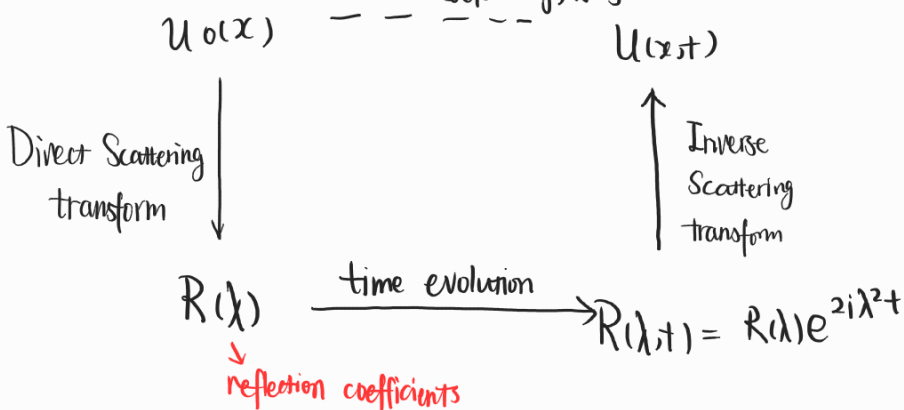 U₀(x)
U(x,t)
Direct Scattering
transform
Inverse
Scattering
transform
R(λ)
time evolution
R(λ,t) = R(λ)e^{2iλ²t}
reflection coefficients